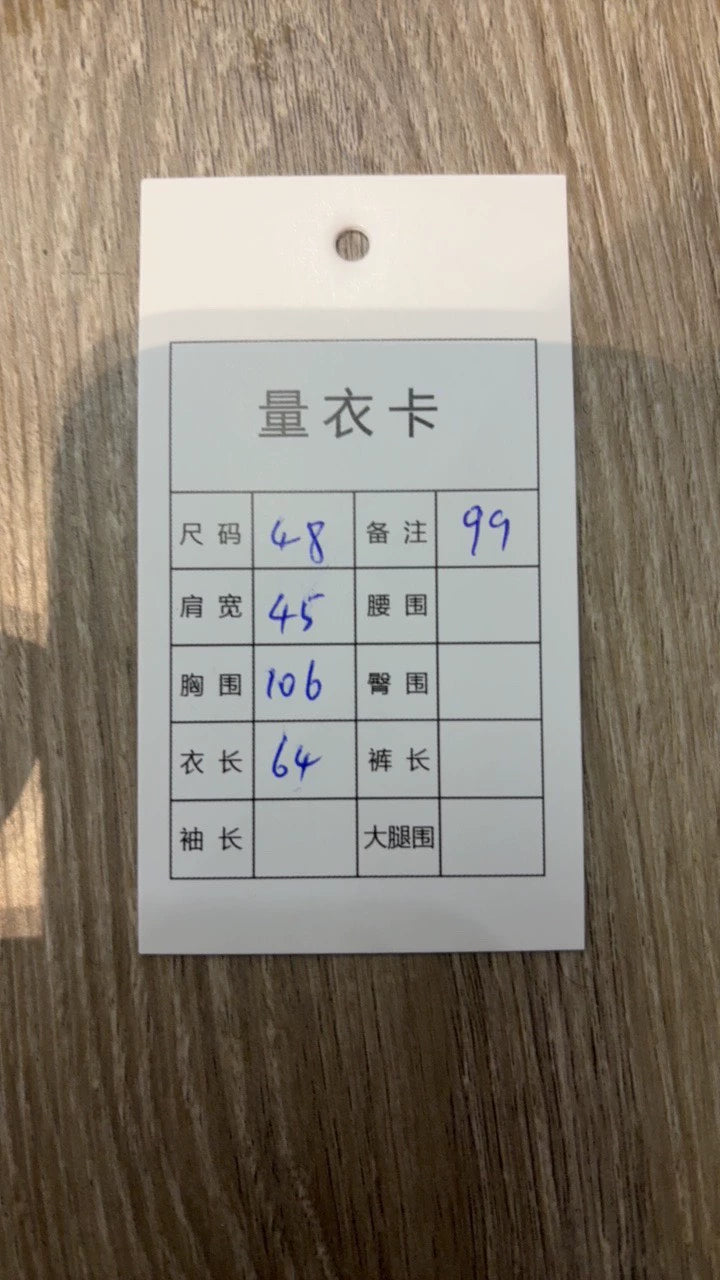 量衣卡
尺码 48 备注 99
肩宽 45 腰围
胸围 106 臀围
衣长 64 裤长
袖长 大腿围